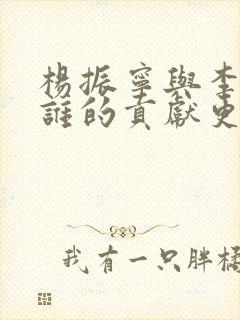 楊振寧與李
誰的貢獻更
我有一只胖橘